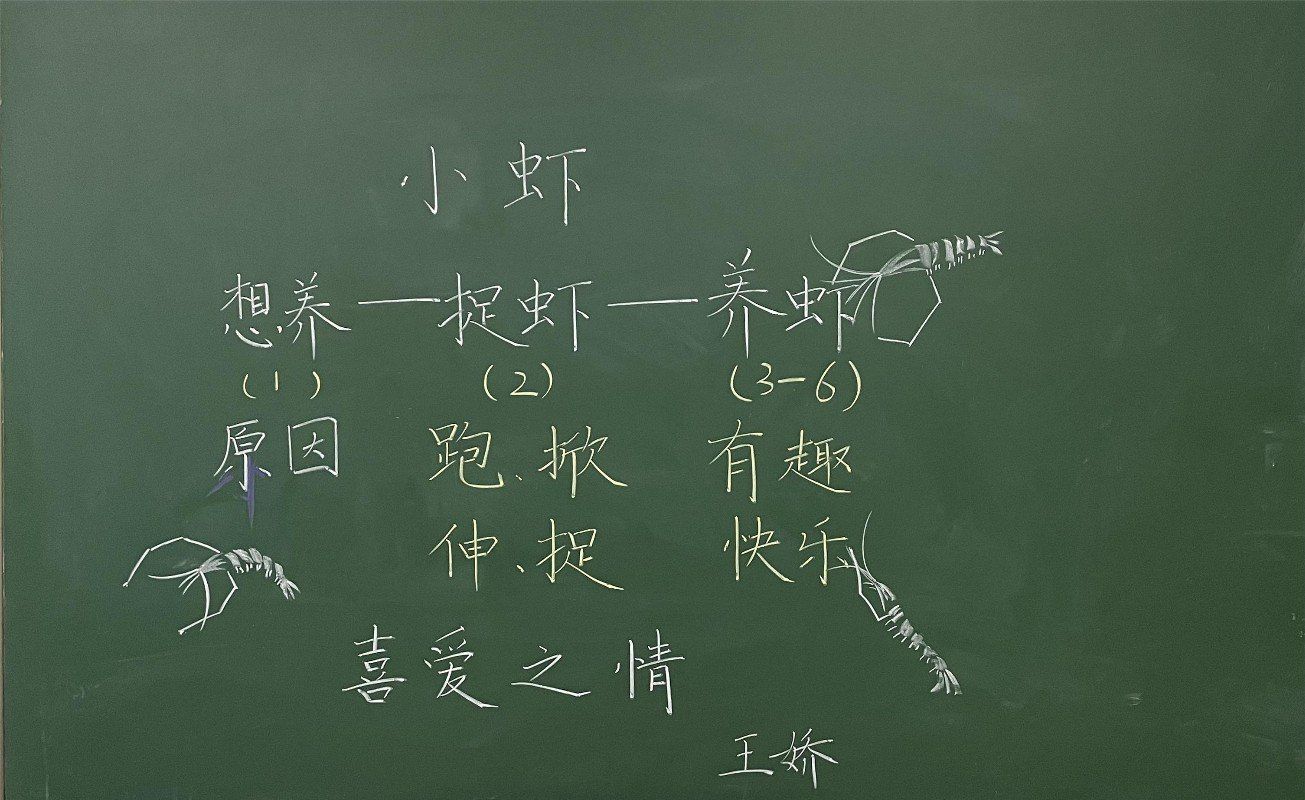 小虾
想养—捉虾—养虾
(1) (2) (3-6)
原因 跑、掀 有趣
伸、捉 快乐
喜爱之情
王娇